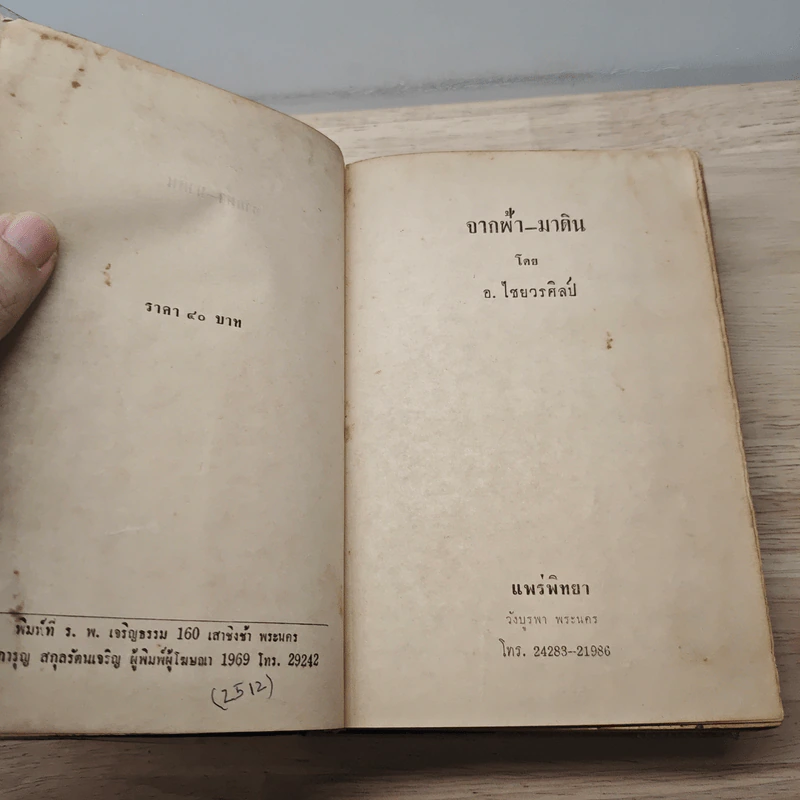 ราคา ๔๐ บาท
พิมพ์ที่ ร. พ. เจริญธรรม 160 เสาชิงช้า พระนคร
การุญ สกุลรัตนเจริญ ผู้พิมพ์ผู้โฆษณา 1969 โทร. 29242
(2512)
จากฟ้า-มาดิน
โดย
อ. ไชยวรศิลป์
แพร่พิทยา
วังบูรพา พระนคร
โทร. 24283--21986